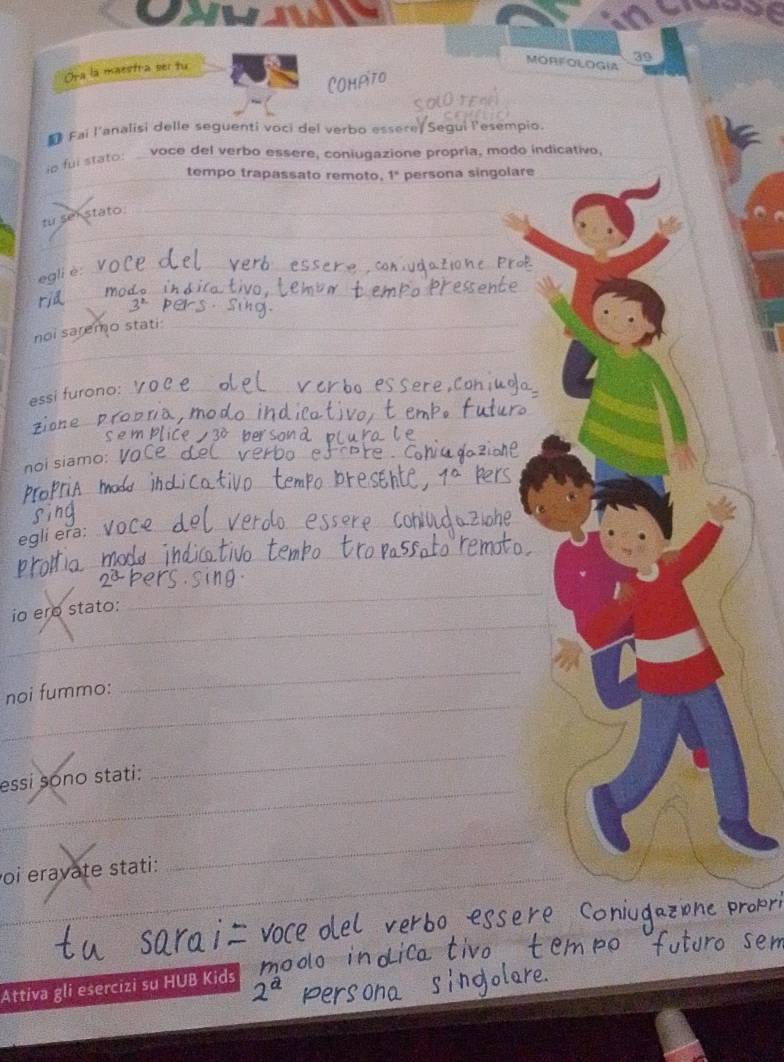 MORFOLOGIA 39
Ora la maestra sei tu
COMPITO
SOLO TEMPI
SEMPLICI
1 Fai l'analisi delle seguenti voci del verbo essere. Segui l'esempio.
io fui stato: voce del verbo essere, coniugazione propria, modo indicativo,
tempo trapassato remoto, 1ª persona singolare
tu sei stato:
egli è: voce del verb essere, coniugazione prop
ria modo indicativo, tempo pressente
3ª pers. sing.
noi saremo stati:
essi furono: voce del verbo essere, coniuga=
zione propria, modo indicativo, tempo futuro
semplice, 3ª persona plurale
noi siamo: voce del verbo essere. coniugazione
propria modo indicativo tempo presente, 1ª pers
sing
egli era: voce del verdo essere coniudazione
propria modo indicativo tempo tropassato remoto.
2ª pers. sing.
io ero stato:
noi fummo:
essi sono stati:
voi eravate stati:
tu sarai = voce del verbo essere coniugazione propri
modo indicativo tempo futuro sem
2ª persona singolare.
Attiva gli esercizi su HUB Kids